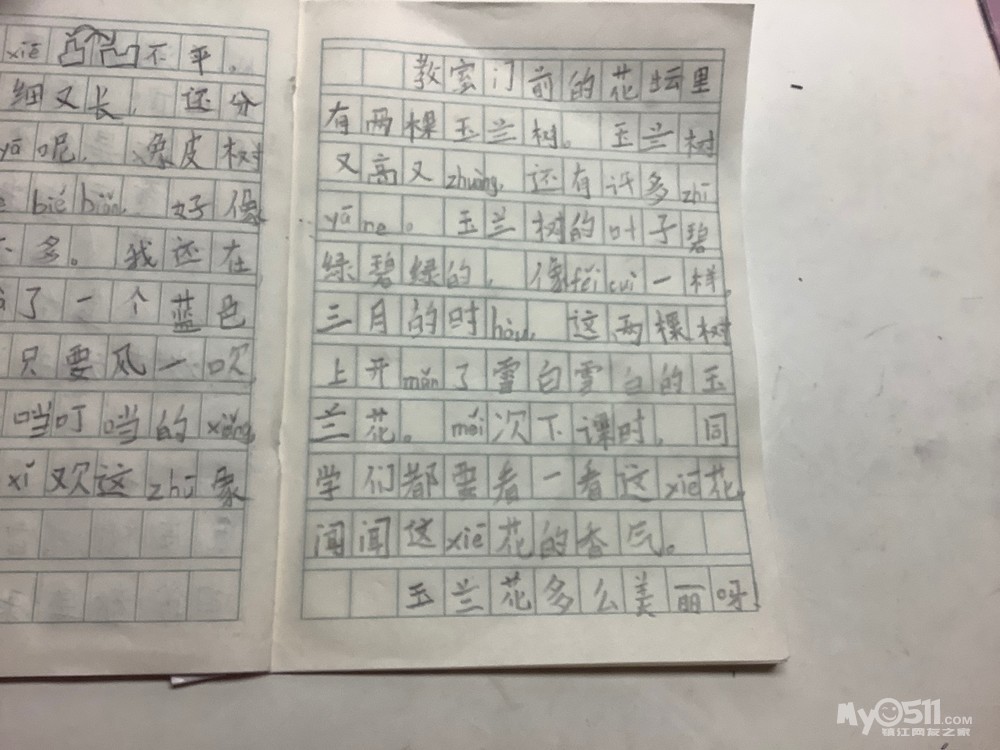 xiē 凸凹不平。
细又长，还分
yā呢，象皮树
bié biǎn，好像
不多。我还在
了一个蓝色
只要风一吹，
当叮当的xiǎng，
xǐ欢这zhū象
教室门前的花坛里
有两棵玉兰树。玉兰树
又高又zhuàng，还有许多zhī
yā ne。玉兰树的叶子碧
绿碧绿的，像fěi cuì一样，
三月的时hòu，这两棵树
上开mǎn了雪白雪白的玉
兰花。měi次下课时，同
学们都要看一看这xiē花，
闻闻这xiē花的香气。
玉兰花多么美丽呀！
My0511.com
镇江网友之家